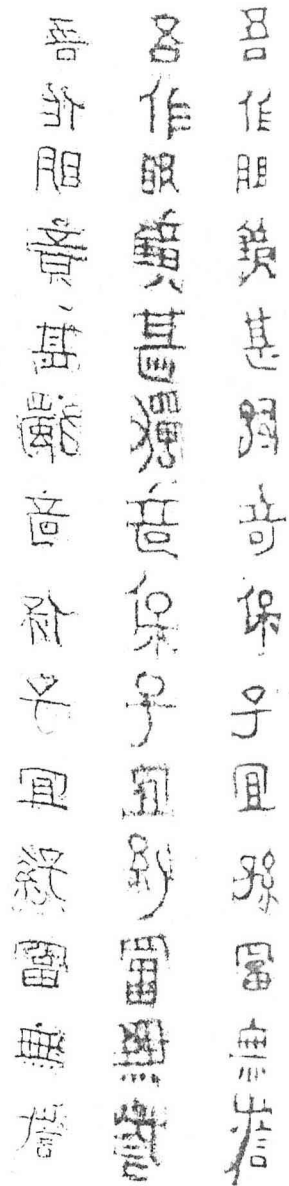 吾作明鏡甚獨奇保子宜孫富無訾
吾作明鏡甚獨奇保子宜孫富無訾
吾作明竟甚獨奇保子宜孫富無訾